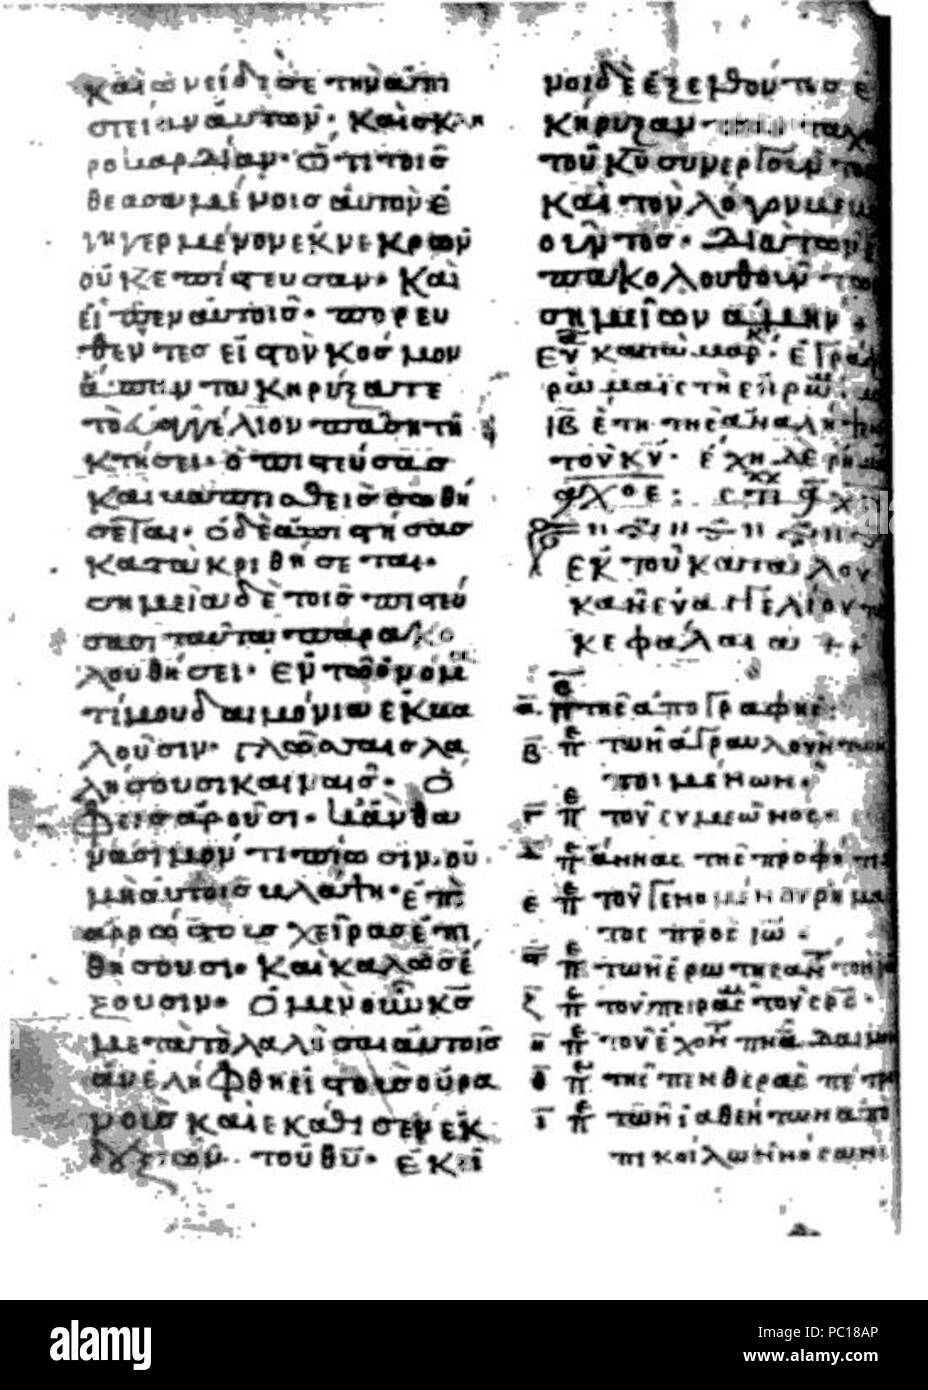 καὶ ὠνείδισε τὴν ἀπι
στείαν αὐτῶν· καὶ σκλη
ροκαρδίαν· ὅτι τοῖσ
θεασαμένοισ αὐτὸν ἐ
γηγερμένον ἐκ νεκρῶν
οὐκ ἐπίστευσαν· Καὶ
εἶπεν αὐτοῖσ· πορευ
θέντεσ εἰσ τὸν κόσμον
ἅπαντα κηρύξατε
τὸ εὐαγγέλιον πάση τῆ
κτήσει· ὁ πιστεύσασ
καὶ βαπτισθεὶσ σωθή
σεται· ὁ δὲ ἀπιστήσασ
κατακριθήσεται·
σημεῖα δὲ τοῖσ πιστεύ
σασι ταῦτα παρακο
λουθήσει· ἐν τῶ ὀνόμα
τί μου δαιμόνια ἐκβα
λοῦσιν· γλώσσαισ λα
λήσουσι καιναῖσ· ὄ
φεισ ἀροῦσι· κἂν θα
νάσιμόν τι πίωσιν, οὐ
μὴ αὐτοὺσ βλάψη· ἐπὶ
ἀρρώστουσ χεῖρασ ἐπι
θήσουσι· καὶ καλῶσ ἕ
ξουσιν· Ὁ μὲν οὖν κσ
μετὰ τὸ λαλῆσαι αὐτοῖσ
ἀνελήφθη εἰσ τοὺσ οὐρα
νοὺσ καὶ ἐκάθισεν ἐκ
δεξιῶν τοῦ θυ· ἐκεῖ
νοι δὲ ἐξελθόντεσ ἐ
κήρυξαν πανταχοῦ
τοῦ κυ συνεργοῦντοσ
καὶ τὸν λόγον βεβαι
οῦντοσ· διὰ τῶν ἐ
πακολουθούντων
σημείων ἀμήν +
Εὐα κατὰ μάρκ· ἐγρά
ρωμαϊστὶ ἐν ρώμ
ΙΒ ἔτη τῆς ἀναλήψε
τοῦ κυ· ἔχη δὲ ρή
αχοε: στι αχ
ἐκ τοῦ κατὰ λου
κᾶν εὐαγγελίου τὰ
κεφάλαια ++
α. π τῆς ἀπογραφῆς·
β π τῶν ἀγραυλούντων
ποιμένων·
γ π τοῦ συμεῶνος·
δ π ἄννας τῆς προφήτι
ε π τοῦ γενομένου ρήμα
τος πρὸς ιω·
ϛ π τῶν ἐρωτησάντων
ζ π τοῦ πειρασμοῦ
η π τοῦ ἔχοντ πνα δαιμον
θ π τῆς πενθερᾶς πέτρ
ι π τῶν ἰαθέντων ἀπὸ
ποικίλων νόσων
alamy
Image ID: PC18AP
www.alamy.com